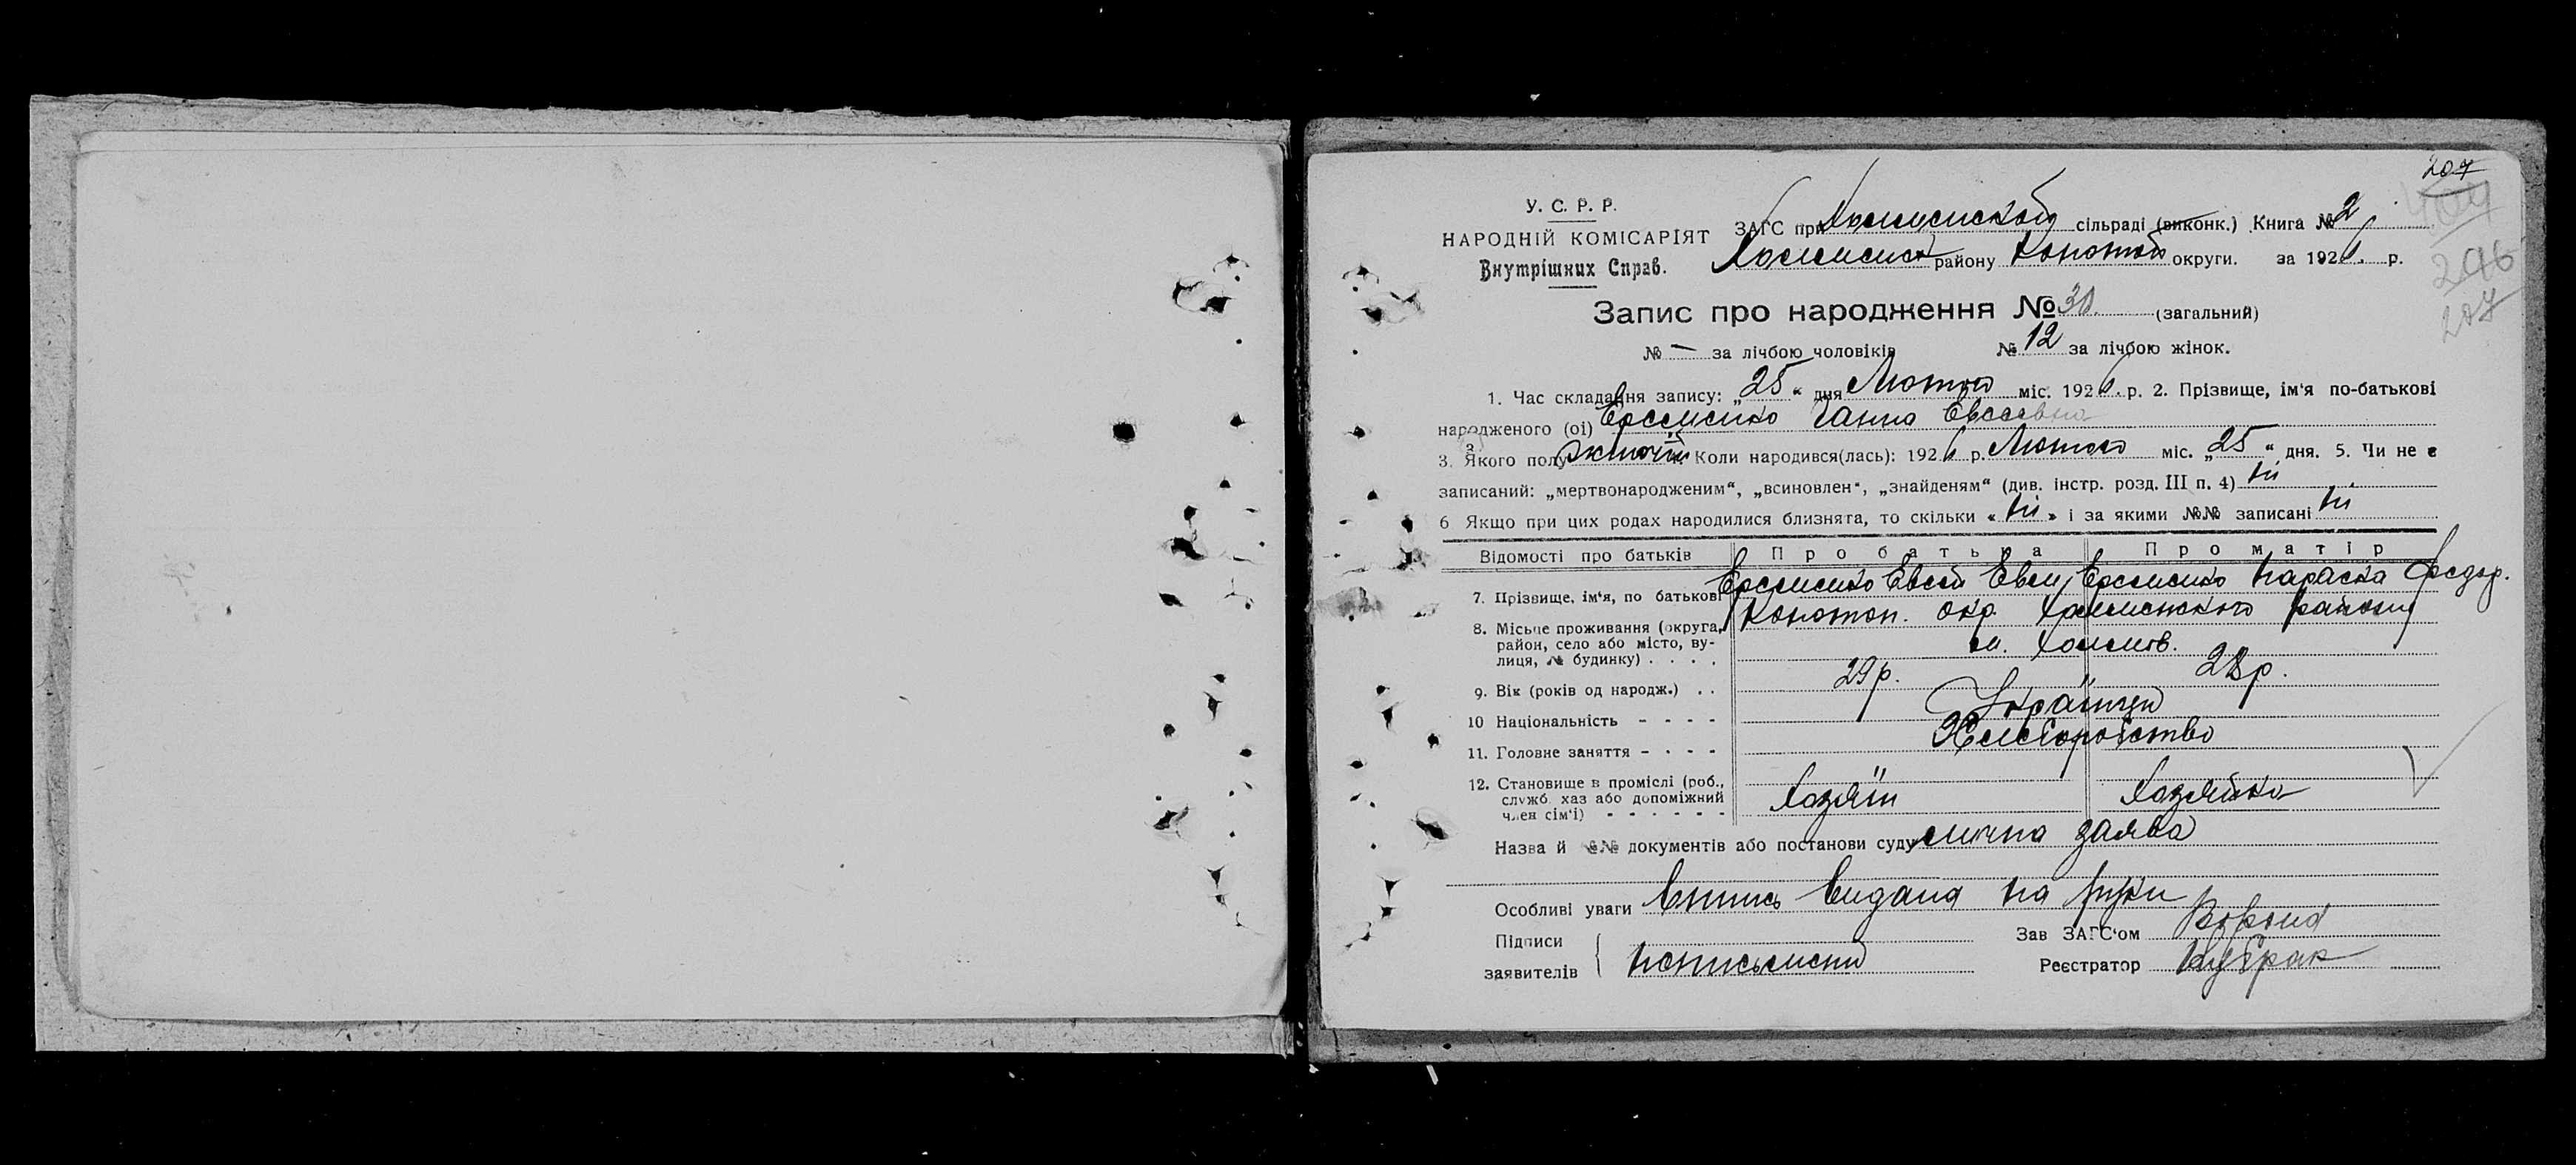 207
У. С. Р. Р.
НАРОДНІЙ КОМІСАРІЯТ
Внутрішних Справ.
ЗАГС при сільраді (виконк.) Книга № 2
району Конотоп округи. за 1926 р.
296
207
Запис про народження № 30 (загальний)
№ — за лічбою чоловіків № 12 за лічбою жінок.
1. Час складання запису: „25“ дня Лютого міс. 1926 р. 2. Прізвище, ім‘я по-батькові
народженого (ої) Ганна Евсеевна
3. Якого полу жіночій Коли народився(лась): 1926 р. Лютого міс. „25“ дня. 5. Чи не є
записаний: „мертвонародженим“, „всиновлен“, „знайденям“ (див. інстр. розд. III п. 4) ні
6 Якщо при цих родах народилися близнята, то скільки « ні » і за якими №№ записані ні
Відомості про батьків Про батька Про матір
7. Прізвище, ім‘я, по батькові Евсей Параска Федор.
8. Місьце проживання (округа, район, село або місто, вулиця, № будинку) . . . . Конотоп. окр. району
м.
9. Вік (років од народж.) . . 29 р. 28 р.
10 Національність - - - - Українці
11. Головне заняття - - - - Хліборобство
12. Становище в проміслі (роб., служб. хаз або допоміжний член сім‘ї) - - - - - - Хазяїн Хазяйка
Назва й №№ документів або постанови суду лична заява
Особливі уваги Випись видана на руки
Підписи заявителів { неписьменні
Зав ЗАГС‘ом
Реєстратор